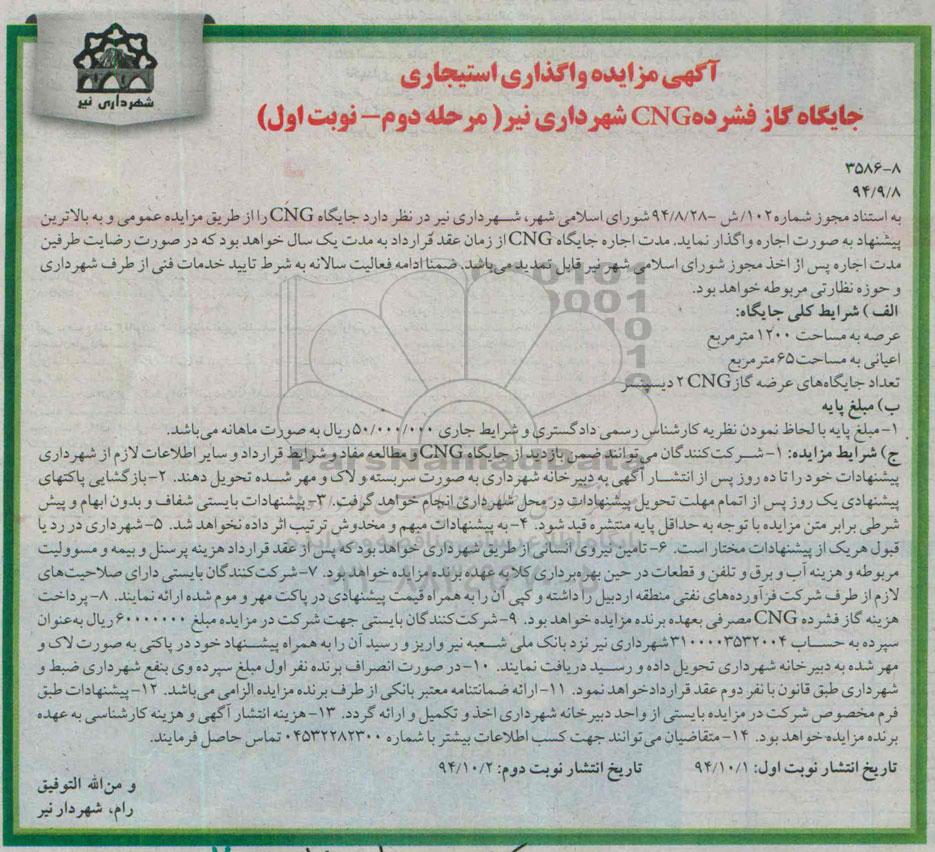 شهرداری نیر
آگهی مزایده واگذاری استیجاری
جایگاه گاز فشرده CNG شهرداری نیر( مرحله دوم – نوبت اول)
۳۵۸۶-۸
۹۴/۹/۸
به استناد مجوز شماره ۱۰۲/ ش -۹۴/۸/۲۸ شورای اسلامی شهر، شهرداری نیر در نظر دارد جایگاه CNG را از طریق مزایده عمومی و به بالاترین
پیشنهاد به صورت اجاره واگذار نماید. مدت اجاره جایگاه CNG از زمان عقد قرارداد به مدت یک سال خواهد بود که در صورت رضایت طرفین
مدت اجاره پس از اخذ مجوز شورای اسلامی شهر نیر قابل تمدید می‌باشد. ضمنا ادامه فعالیت سالانه به شرط تایید خدمات فنی از طرف شهرداری
و حوزه نظارتی مربوطه خواهد بود.
الف ) شرایط کلی جایگاه:
عرصه به مساحت ۱۲۰۰ مترمربع
اعیانی به مساحت ۶۵ مترمربع
تعداد جایگاه‌های عرضه گاز CNG ۲ دیسپنسر
ب) مبلغ پایه
۱- مبلغ پایه با لحاظ نمودن نظریه کارشناس رسمی دادگستری و شرایط جاری ۵۰/۰۰۰/۰۰۰ ریال به صورت ماهانه می‌باشد.
ج) شرایط مزایده: ۱- شرکت‌کنندگان می‌توانند ضمن بازدید از جایگاه CNG و مطالعه مفاد و شرایط قرارداد و سایر اطلاعات لازم از شهرداری
پیشنهادات خود را تا ده روز پس از انتشار آگهی به دبیرخانه شهرداری به صورت سربسته و لاک و مهر شده تحویل دهند. ۲- بازگشایی پاکتهای
پیشنهادی یک روز پس از اتمام مهلت تحویل پیشنهادات در محل شهرداری انجام خواهد گرفت. ۳- پیشنهادات بایستی شفاف و بدون ابهام و پیش
شرطی برابر متن مزایده با توجه به حداقل پایه منتشره قید شود. ۴- به پیشنهادات مبهم و مخدوش ترتیب اثر داده نخواهد شد. ۵- شهرداری در رد یا
قبول هریک از پیشنهادات مختار است. ۶- تامین نیروی انسانی از طریق شهرداری خواهد بود که پس از عقد قرارداد هزینه پرسنل و بیمه و مسوولیت
مربوطه و هزینه آب و برق و تلفن و قطعات در حین بهره‌برداری کلا به عهده برنده مزایده خواهد بود. ۷- شرکت‌کنندگان بایستی دارای صلاحیت‌های
لازم از طرف شرکت فرآورده‌های نفتی منطقه اردبیل را داشته و کپی آن را به همراه قیمت پیشنهادی در پاکت مهر و موم شده ارائه نمایند. ۸- پرداخت
هزینه گاز فشرده CNG مصرفی بعهده برنده مزایده خواهد بود. ۹- شرکت‌کنندگان بایستی جهت شرکت در مزایده مبلغ ۶۰۰۰۰۰۰۰ ریال به‌عنوان
سپرده به حساب ۳۱۰۰۰۰۳۵۳۲۰۰۴ شهرداری نیر نزد بانک ملی شعبه نیر واریز و رسید آن را به همراه پیشنهاد خود در پاکتی به صورت لاک و
مهر شده به دبیرخانه شهرداری تحویل داده و رسید دریافت نمایند. ۱۰- در صورت انصراف برنده نفر اول مبلغ سپرده وی بنفع شهرداری ضبط و
شهرداری طبق قانون با نفر دوم عقد قرارداد خواهد نمود. ۱۱- ارائه ضمانتنامه معتبر بانکی از طرف برنده مزایده الزامی می‌باشد. ۱۲- پیشنهادات طبق
فرم مخصوص شرکت در مزایده بایستی از واحد دبیرخانه شهرداری اخذ و تکمیل و ارائه گردد. ۱۳- هزینه انتشار آگهی و هزینه کارشناسی به عهده
برنده مزایده خواهد بود. ۱۴- متقاضیان می‌توانند جهت کسب اطلاعات بیشتر با شماره ۰۴۵۳۲۲۸۲۳۰۰ تماس حاصل فرمایند.
تاریخ انتشار نوبت اول: ۹۴/۱۰/۱ تاریخ انتشار نوبت دوم: ۹۴/۱۰/۲
و من‌الله التوفیق
رام، شهردار نیر
ParsNamadData